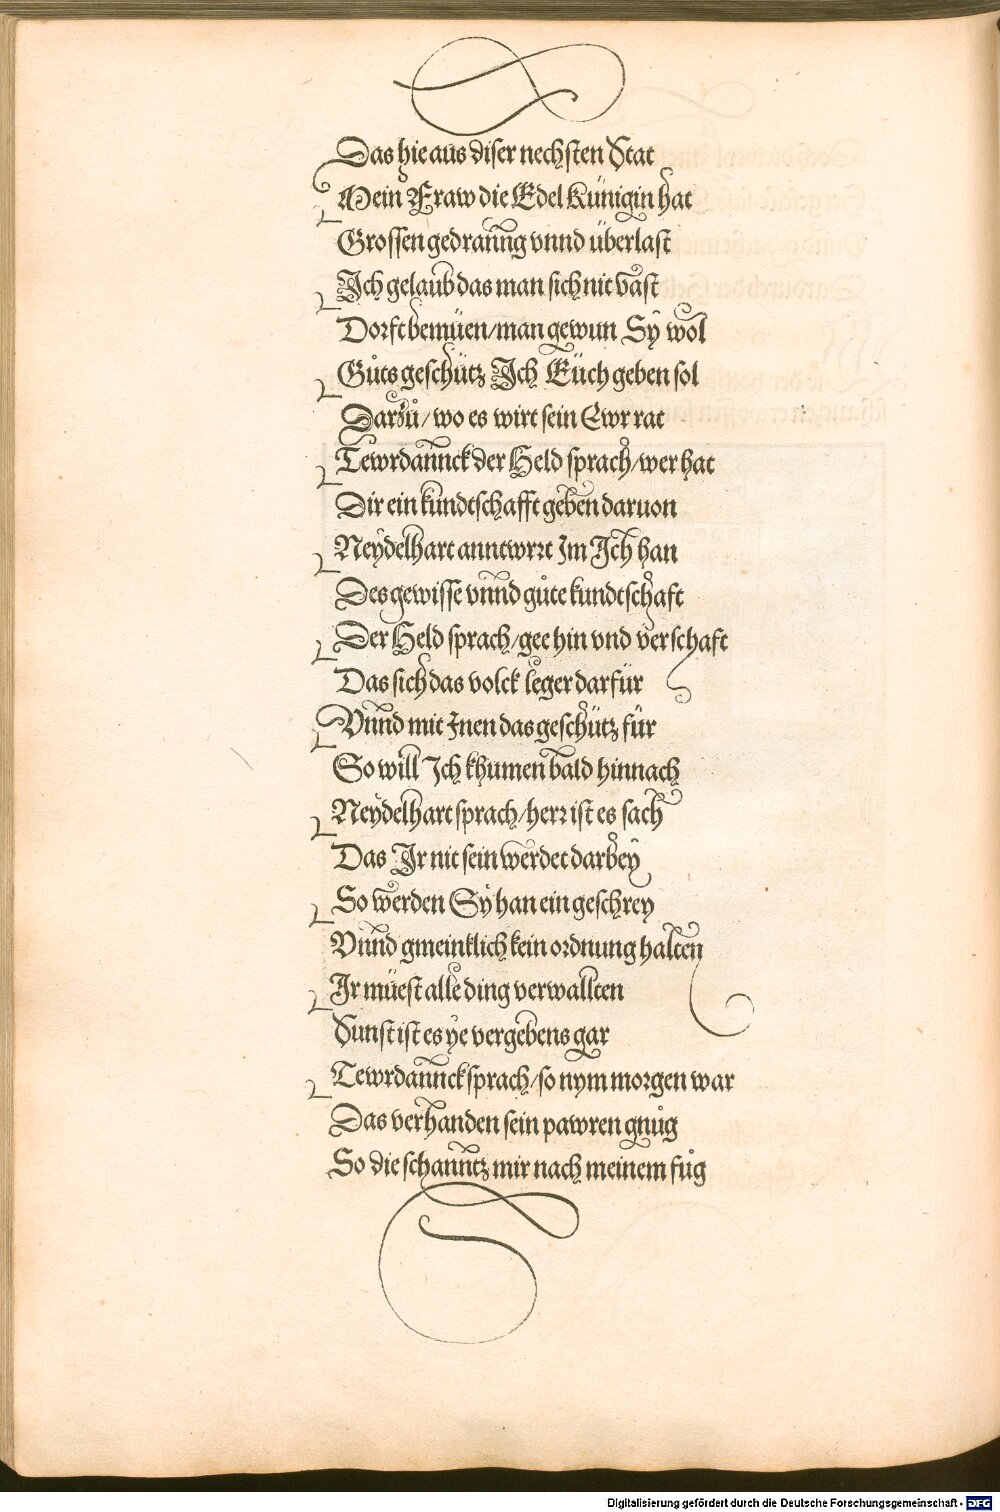 Das hie aus diser nechsten Stat
Mein Fraw die Edel Künigin hat
Grossen gedranng vnnd überlast
Ich gelaub das man sich nit vast
Dorft bemüen/man gewun Sÿ wol
Gůts geschütz Ich Eüch geben sol
Darzů/wo es wirt sein Ewr rat
Tewrdannck der Held sprach/wer hat
Dir ein kundtschafft geben daruon
Neÿdelhart anntwurt Im Ich han
Des gewisse vnnd gůte kundtschaft
Der Held sprach/gee hin vnd verschaft
Das sich das volck leger darfür
Vnnd mit Inen das geschütz für
So will Ich khumen bald hinnach
Neÿdelhart sprach/herr ist es sach
Das Ir nit sein werdet darbeÿ
So werden Sÿ han ein geschrey
Vnnd gmeinklich kein ordnung halten
Ir müest alle ding verwallten
Sunst ist es ÿe vergebens gar
Tewrdannck sprach/so nym morgen war
Das verhanden sein pawren gnůg
So die schanntz mir nach meinem fůg
Digitalisierung gefördert durch die Deutsche Forschungsgemeinschaft - DFG